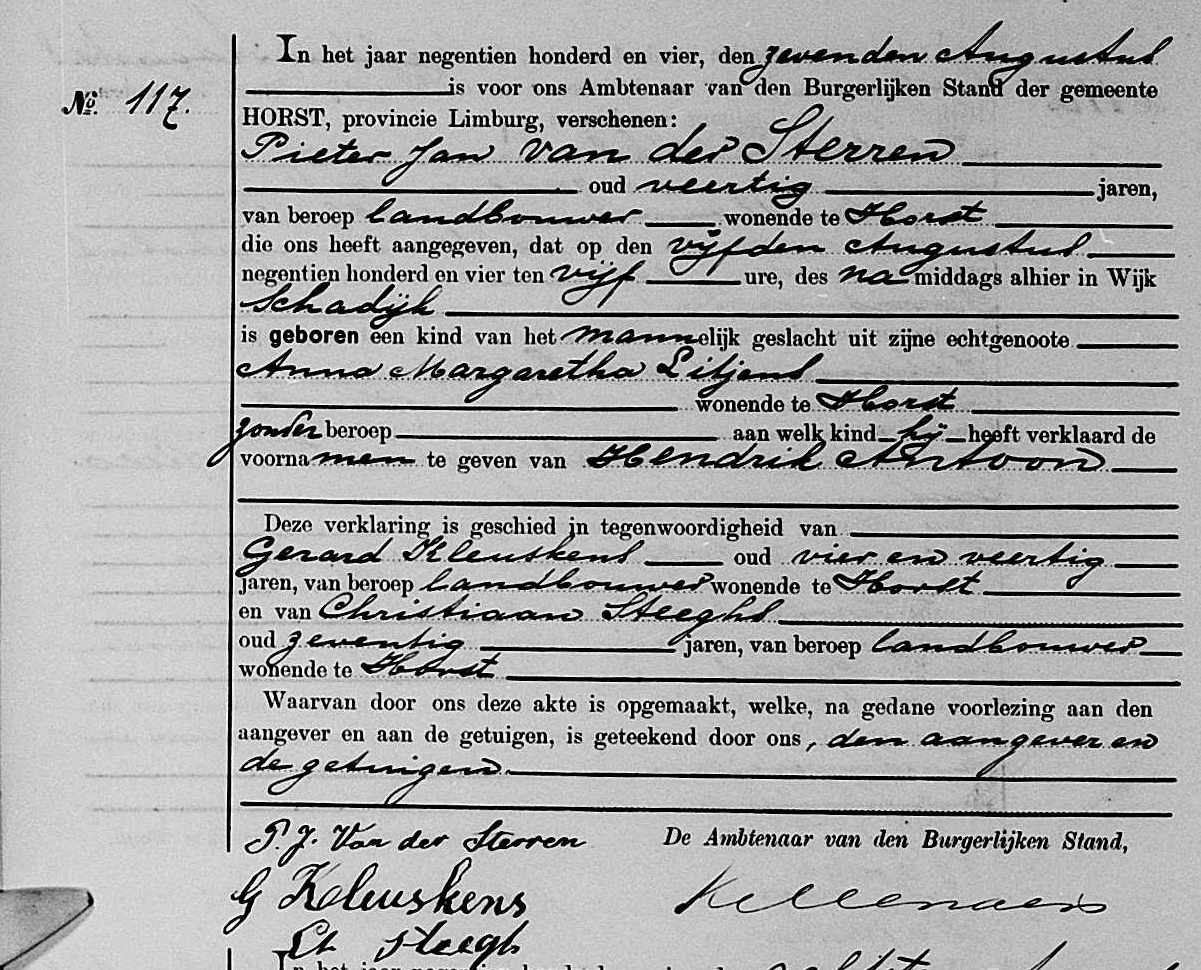 In het jaar negentien honderd en vier, den zevenden Augustus
No. 117.
is voor ons Ambtenaar van den Burgerlijken Stand der gemeente
HORST, provincie Limburg, verschenen:
Pieter Jan van der Sterren
oud veertig jaren,
van beroep landbouwer wonende te Horst
die ons heeft aangegeven, dat op den vijfden Augustus
negentien honderd en vier ten vijf ure, des na middags alhier in Wijk
Schadijk
is geboren een kind van het mannelijk geslacht uit zijne echtgenoote
Anna Margaretha Litjens
wonende te Horst
zonder beroep aan welk kind hij heeft verklaard de
voornamen te geven van Hendrik Antoon
Deze verklaring is geschied in tegenwoordigheid van
Gerard Kleuskens oud vier en veertig
jaren, van beroep landbouwer wonende te Horst
en van Christiaan Steeghs
oud zeventig jaren, van beroep landbouwer
wonende te Horst
Waarvan door ons deze akte is opgemaakt, welke, na gedane voorlezing aan den
aangever en aan de getuigen, is geteekend door ons, den aangever en
de getuigen.
P. J. Van der Sterren De Ambtenaar van den Burgerlijken Stand,
G Kleuskens
Ch Steegh